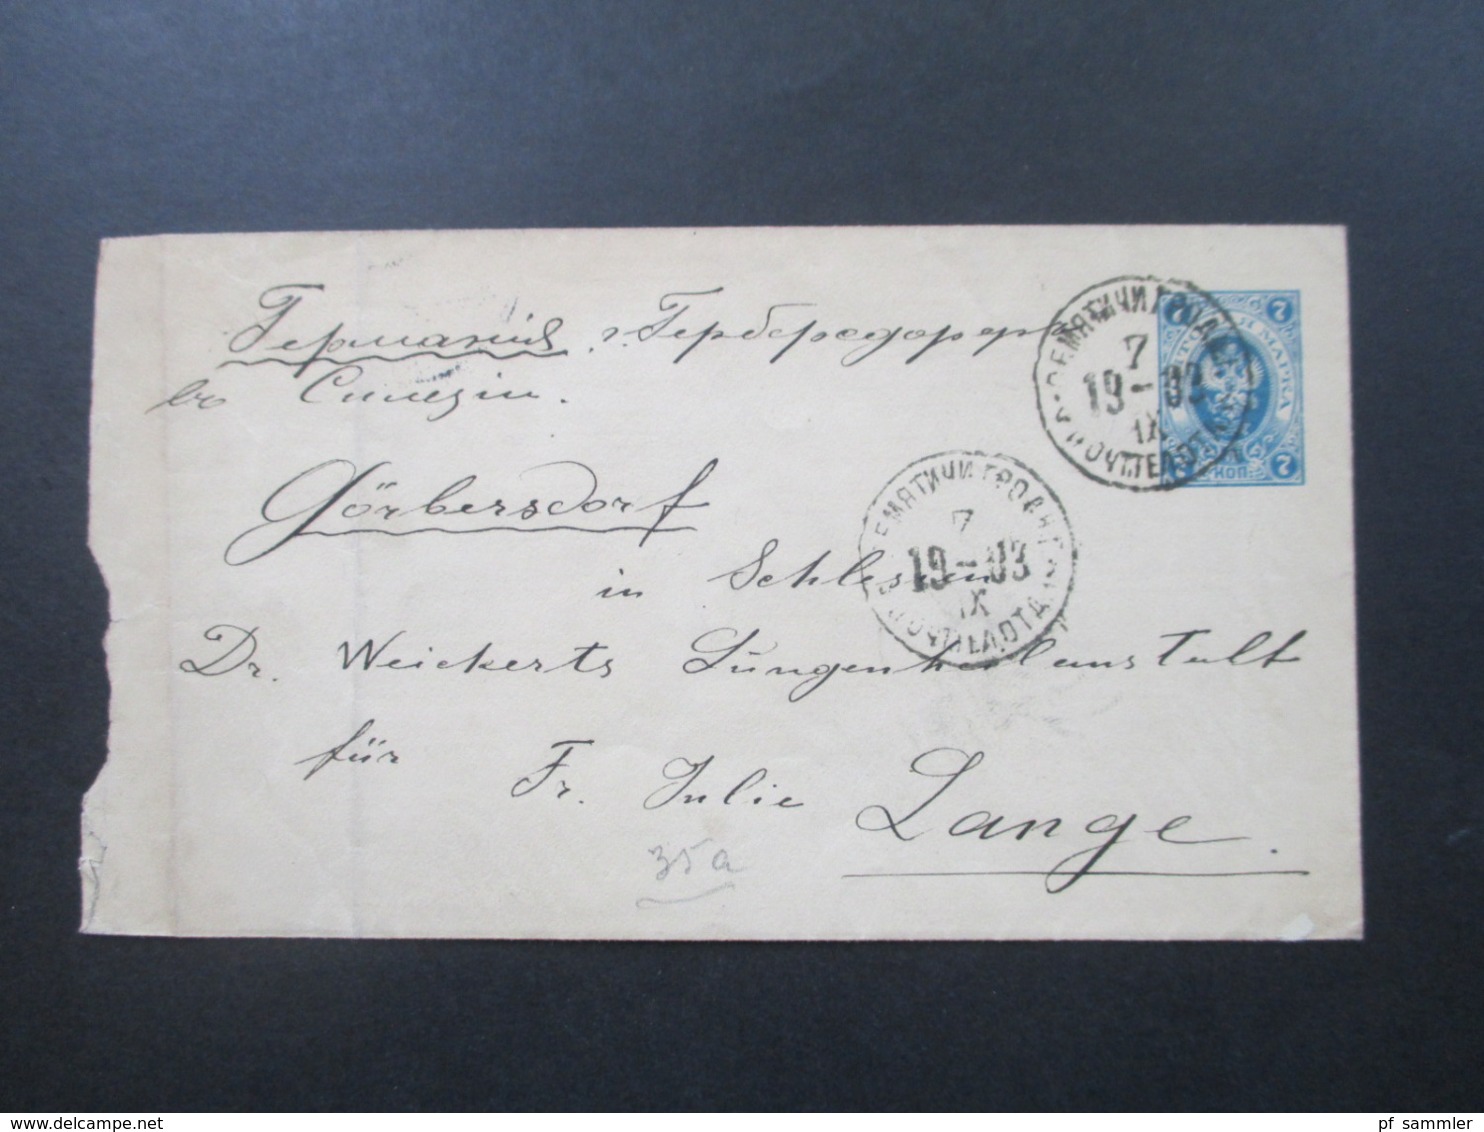 Германія, г. Герберсдорфъ
въ Силезіи.
Görbersdorf
in Schlesien
Dr. Weickerts Lungenheilanstalt
für Fr. Julie Lange.
35a
СЕМЯТИЧИ ГРОДН.
7
19-03
IX
ПОЧ.ТЕЛ.ОТД.
СЕМЯТИЧИ ГРОДН. Г.
7
19-03
IX
ПОЧ.ТЕЛ.ОТД.
7 7
МАРКА
7 КОП. 7
delcampe.net
pf_sammler